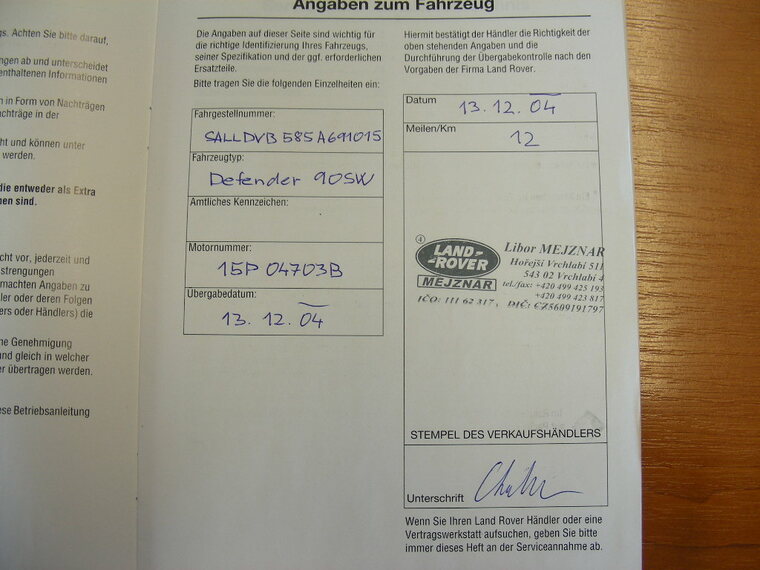 gs. Achten Sie bitte darauf,
ngen ab und unterscheidet
enthaltenen Informationen
n in Form von Nachträgen
achträge in der
cht und können unter
werden.
die entweder als Extra
nen sind.
cht vor, jederzeit und
strengungen
emachten Angaben zu
ler oder deren Folgen
ers oder Händlers) die
ne Genehmigung
und gleich in welcher
er übertragen werden.
ese Betriebsanleitung
Angaben zum Fahrzeug
Die Angaben auf dieser Seite sind wichtig für
die richtige Identifizierung Ihres Fahrzeugs,
seiner Spezifikation und der ggf. erforderlichen
Ersatzteile.
Bitte tragen Sie die folgenden Einzelheiten ein:
Fahrgestellnummer:
SALLDVB585A691015
Fahrzeugtyp:
Defender 90SW
Amtliches Kennzeichen:
Motornummer:
15P04703B
Übergabedatum:
13.12.04
Hiermit bestätigt der Händler die Richtigkeit der
oben stehenden Angaben und die
Durchführung der Übergabekontrolle nach den
Vorgaben der Firma Land Rover.
Datum 13.12.04
Meilen/Km 12
④
LAND-
-ROVER
MEJZNAR
Libor MEJZNAR
Hořejší Vrchlabí 511
543 02 Vrchlabí 4
tel./fax: +420 499 425 193
+420 499 423 817
IČO: 111 62 317, DIČ: CZ5609191797
STEMPEL DES VERKAUFSHÄNDLERS
Unterschrift
Wenn Sie Ihren Land Rover Händler oder eine
Vertragswerkstatt aufsuchen, geben Sie bitte
immer dieses Heft an der Serviceannahme ab.